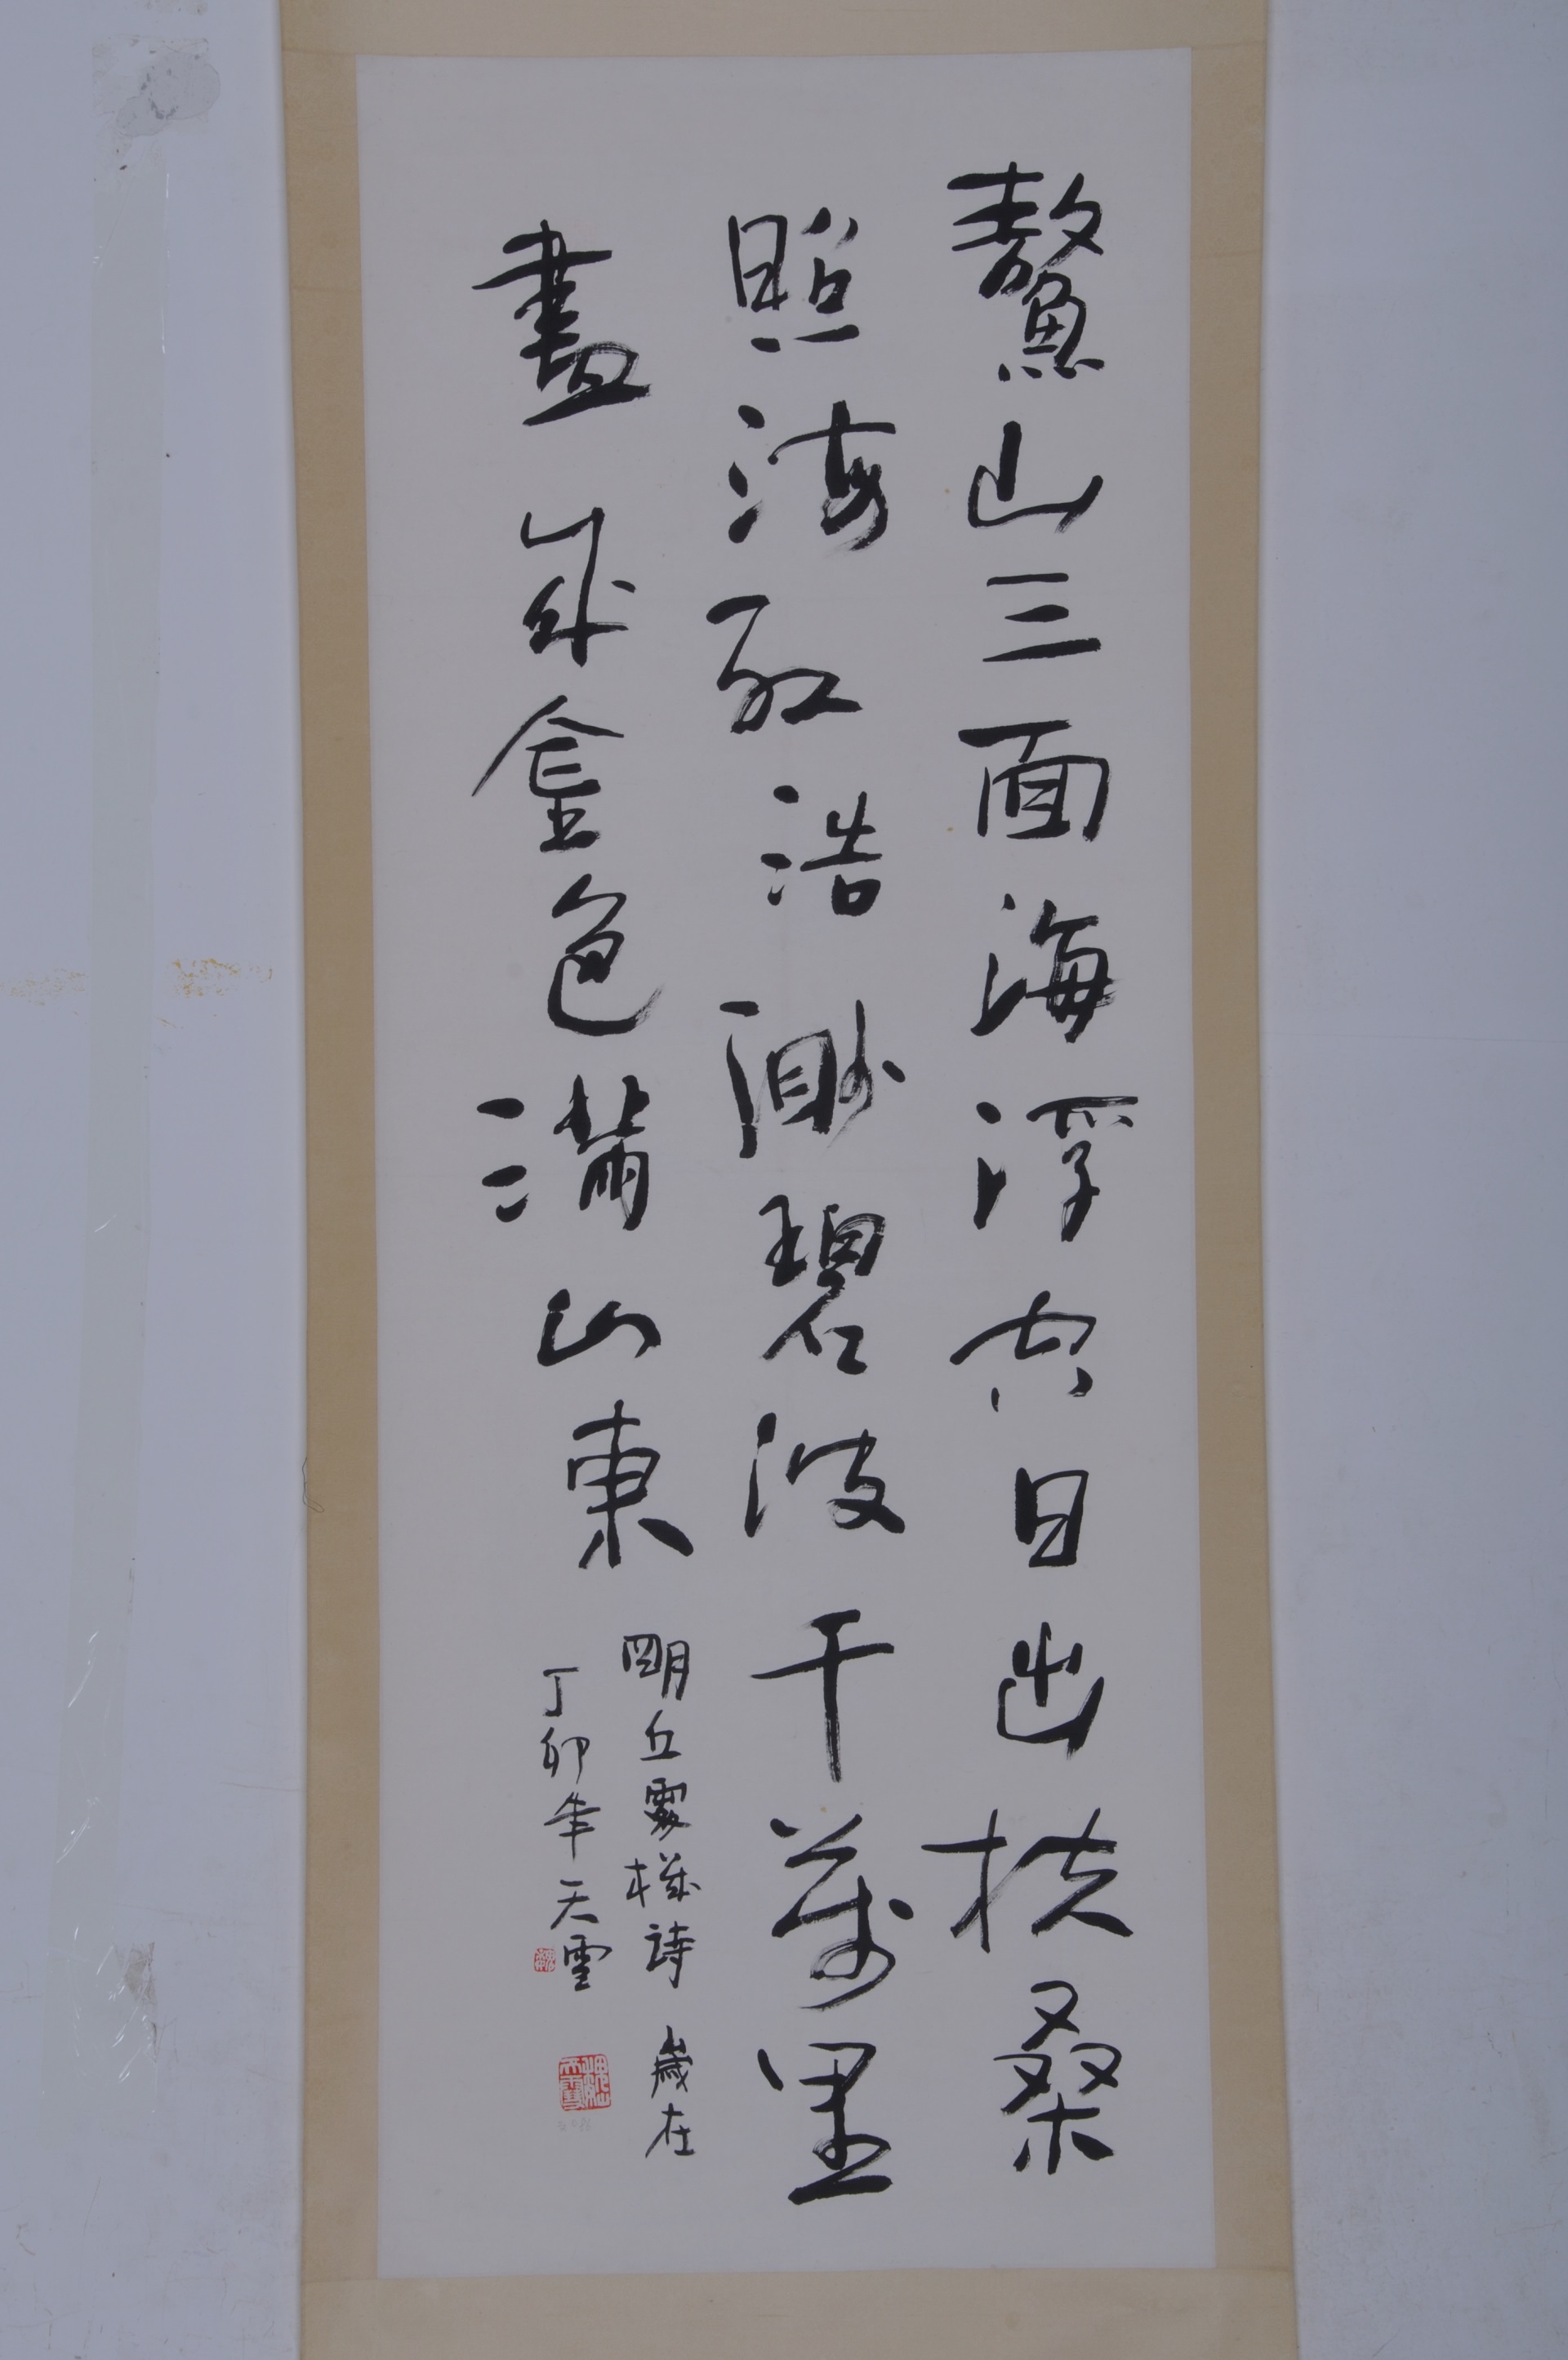 鰲山三面海浮空日出扶桑
照海紅浩渺碧波千萬里
盡成金色滿山東
明丘處機詩 歲在
丁卯年天雪